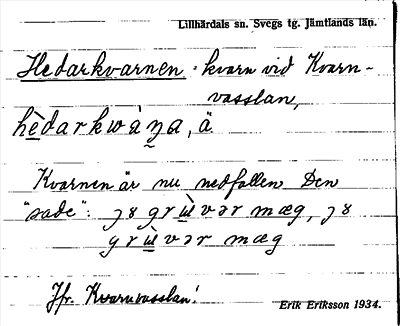 Lillhärdals sn. Svegs tg. Jämtlands län.
Hedarkvarnen = kvarn vid Kvarn-
vasslan,
hèdarkwàṇa, ä
Kvarnen är nu nedfallen Den
"sade": ȷɞ grùvər mæg, ȷɞ
grùvər mæg
Jfr. Kvarnvasslan!
Erik Eriksson 1934.